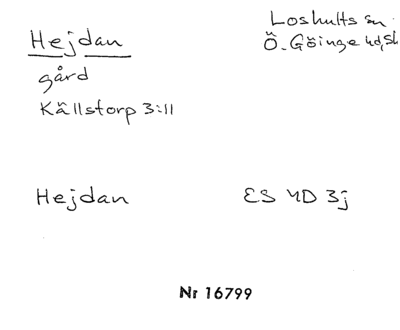 Hejdan
gård
Källstorp 3:11
Loshults sn
Ö. Göinge hd, Sk
Hejdan
ES 4D 3j
Nr 16799